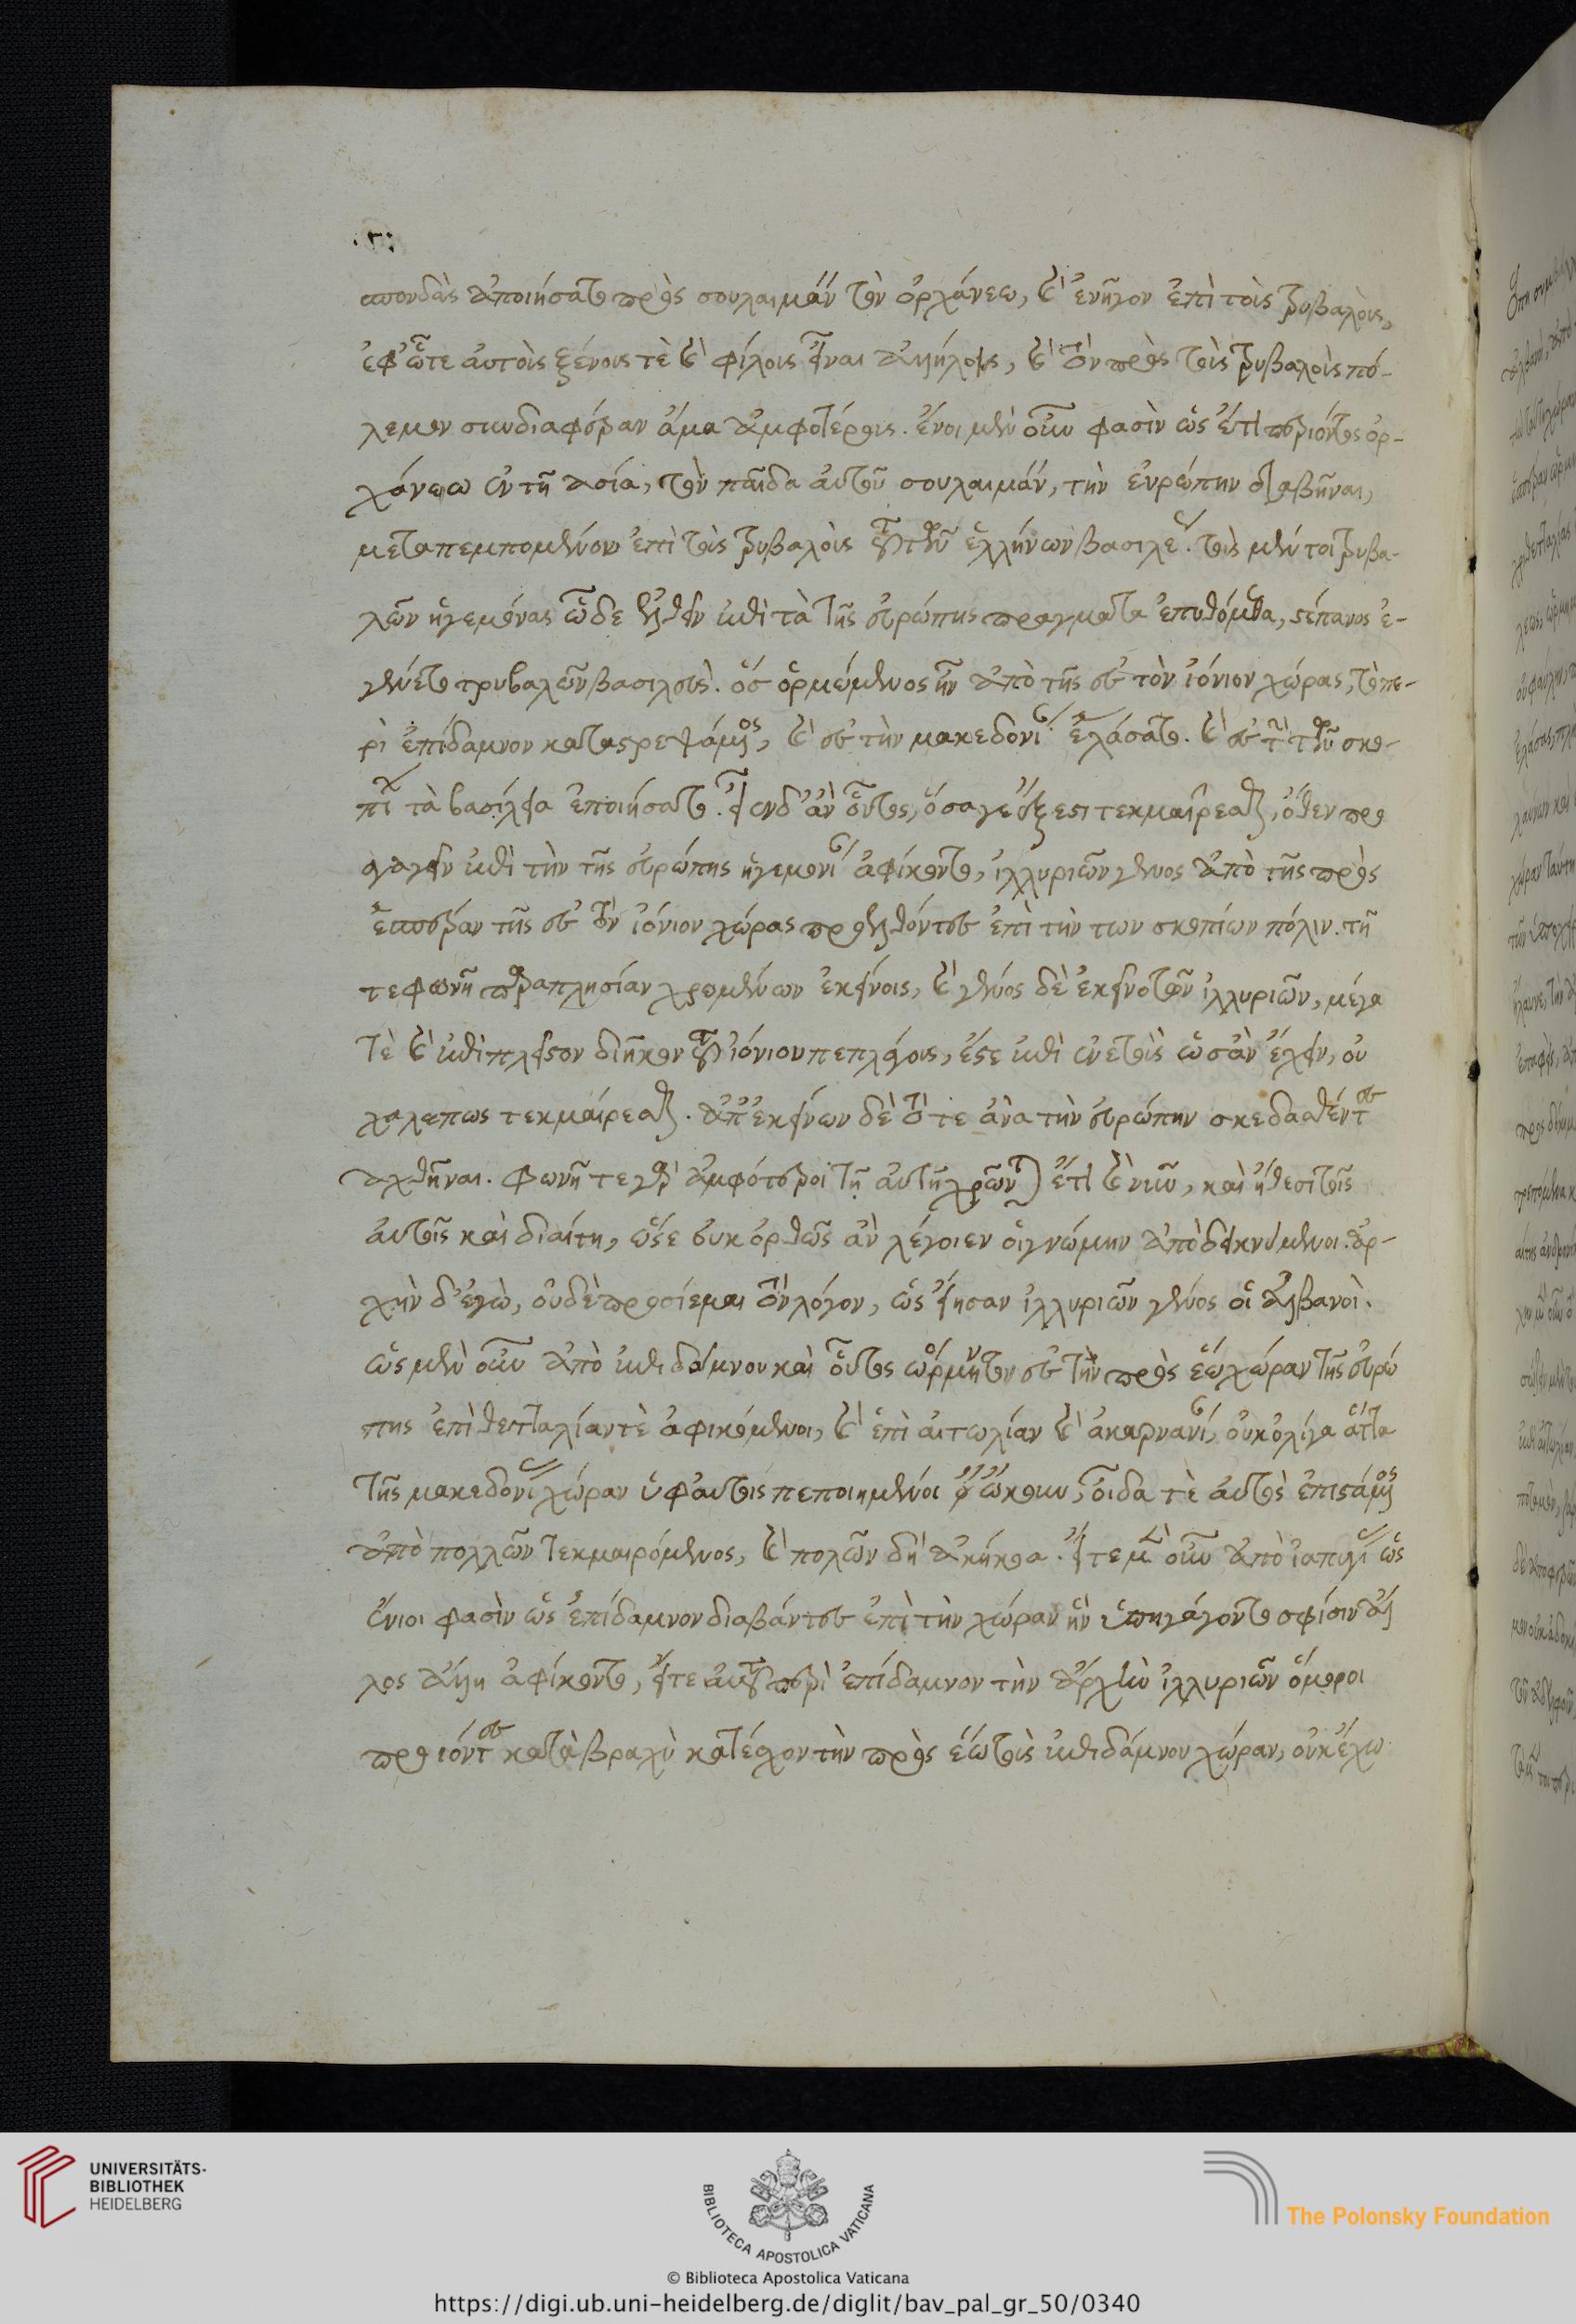 σπονδὰς ἐποιήσατο πρὸς σουλαιμὰν τὸν ὀρχάνεω, καὶ ἐνῆγον ἐπὶ τοὺς τριβαλοὺς,
ἐφ᾽ ὧτε αὐτοὺς ξένους τὲ καὶ φίλους εἶναι ἀλλήλοις, καὶ τὸν πρὸς τοὺς τριβαλοὺς πό-
λεμον συνδιαφέρειν ἅμα ἀμφοτέροις. ἔνιοι μὲν οὖν φασὶν ὡς ἔτι περιόντος ὀρ-
χάνεω ἐν τῆ ἀσία, τὸν παῖδα αὐτοῦ σουλαιμάν, τὴν εὐρώπην διαβῆναι,
μεταπεμπομένου ἐπὶ τοὺς τριβαλοὺς τοῦ τῶν ἑλλήνων βασιλέως. τοὺς μέντοι τριβα-
λῶν ἡγεμόνας ὧδε ἐλθεῖν ἐπὶ τὰ τῆς εὐρώπης πραγματα ἐπυθόμεθα, στέπανος ἐ-
γένετο τρυβαλῶν βασιλεύς. ὃς ὁρμώμενος ἦν ἀπὸ τῆς εἰς τὸν ἰόνιον χώρας, τό πε-
ρὶ ἐπίδαμνον καταστρεψάμενος, καὶ εἰς τὴν μακεδονίαν ἐλάσας. καὶ εἰς τὴν τῶν σκο-
πίων τὰ βασίλεια ἐποιήσατο. εἶεν δ᾽ ἂν οὗτος, ὅσα γε ἔξεστι τεκμαίρεσθαι, ὅθεν προ
αγαγεῖν ἐπὶ τὴν τῆς εὐρώπης ἡγεμονίαν ἀφίκοντο, ἰλλυριῶν γένος ἀπὸ τῆς πρὸς
ἑσπέραν τῆς εἰς τὸν ἰόνιον χώρας προελθόντες ἐπὶ τὴν των σκοπίων πόλιν. τῆ
τε φωνῆ παραπλησίαν χρωμένων ἐκείνοις, καὶ γένος δὲ ἐκεῖνο τῶν ἰλλυριῶν, μέγα
τὲ καὶ ἐπὶ πλεῖστον διῆκον τοῦ ἰόνιου πελάγους, ἔστε ἐπὶ ἐνετοὺς ὡς ἂν ἔχειν, οὐ
χαλεπως τεκμαίρεσθαι. ἀπ᾽ ἐκείνων δὲ τό τε ἀνὰ τὴν εὐρώπην σκεδασθέντες
ἀχθῆναι. φωνῆ τε γὰρ ἀμφότεροι τῆ αὐτῆ χρῶνται ἔτι καὶ νῦν, καὶ ἤθεσι τοῖς
αὐτοῖς καὶ διαίτη, ὥστε οὐκ ὀρθῶς ἂν λέγοιεν οἱ γνώμην ἀποδεικνύμενοι. ἀρ-
χὴν δ᾽ ἐγὼ, οὐδὲ προσίεμαι τὸν λόγον, ὡς εἴησαν ἰλλυριῶν γένος οἱ ἀλβανοὶ.
ὡς μὲν οὖν ἀπὸ ἐπιδάμνου καὶ οὗτος ὥρμηντο εἰς τὴν πρὸς ἕω χώραν τῆς εὐρώ
πης ἐπὶ θετταλίαν τὲ ἀφικόμενοι, καὶ ἐπὶ αἰτωλίαν καὶ ἀκαρνανίαν, οὐκ ὀλίγα ἄττα
τῆς μακεδονίας χώραν ὑφ᾽ αὑτοῖς πεποιημένοι ᾤκουν, οἶδα τὲ αὐτὸς ἐπιστάμενος
ἀπὸ πολλῶν τεκμαιρόμενος, καὶ πολῶν δὴ ἀκήκοα. εἴτε μὲν οὖν ἀπὸ ἰαπυγίας ὡς
ἔνιοι φασὶν ὡς ἐπίδαμνον διαβάντες ἐπὶ τὴν χώραν ἣν ὑπηγάγοντο σφίσιν ἄλ
λος ἄλλη ἀφίκοντο, εἴτε αὐτοῦ περὶ ἐπίδαμνον τὴν ἀρχὴν ἰλλυριῶν ὅμοροι
προϊόντες κατὰ βραχὺ κατέσχον τὴν πρὸς ἕω τοὺς ἐπιδάμνου χώραν, οὐκ ἔχω
UNIVERSITÄTS-
BIBLIOTHEK
HEIDELBERG
BIBLIOTECA APOSTOLICA VATICANA
The Polonsky Foundation
© Biblioteca Apostolica Vaticana
https://digi.ub.uni-heidelberg.de/diglit/bav_pal_gr_50/0340